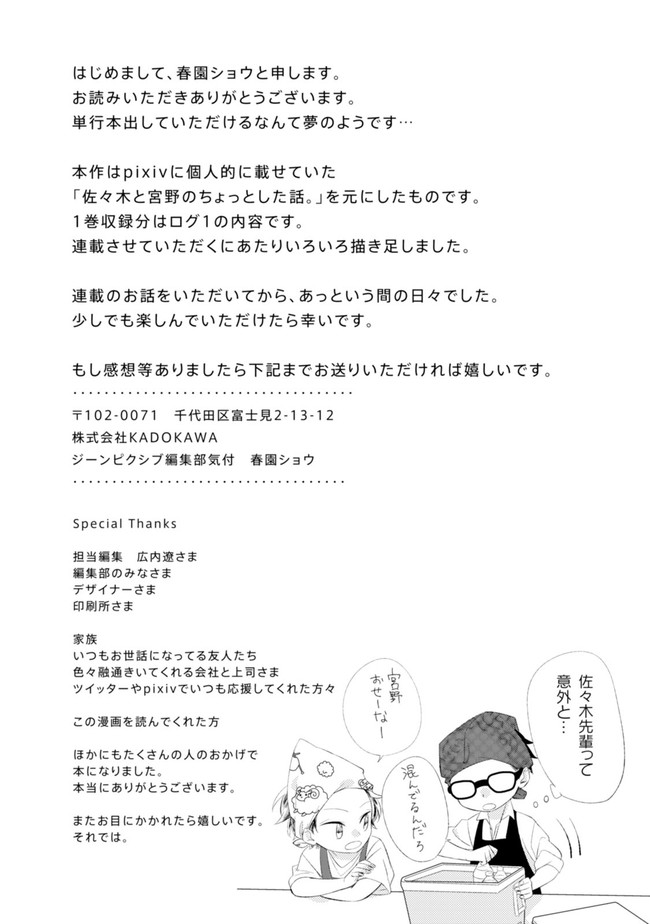 はじめまして、春園ショウと申します。
お読みいただきありがとうございます。
単行本出していただけるなんて夢のようです…
本作はpixivに個人的に載せていた
「佐々木と宮野のちょっとした話。」を元にしたものです。
1巻収録分はログ1の内容です。
連載させていただくにあたりいろいろ描き足しました。
連載のお話をいただいてから、あっという間の日々でした。
少しでも楽しんでいただけたら幸いです。
もし感想等ありましたら下記までお送りいただければ嬉しいです。
〒102-0071 千代田区富士見2-13-12
株式会社KADOKAWA
ジーンピクシブ編集部気付 春園ショウ
Special Thanks
担当編集 広内遼さま
編集部のみなさま
デザイナーさま
印刷所さま
家族
いつもお世話になってる友人たち
色々融通きいてくれる会社と上司さま
ツイッターやpixivでいつも応援してくれた方々
この漫画を読んでくれた方
ほかにもたくさんの人のおかげで
本になりました。
本当にありがとうございます。
またお目にかかれたら嬉しいです。
それでは。
佐々木先輩って
意外と…
宮野
おせーなー
混んでるんだろ